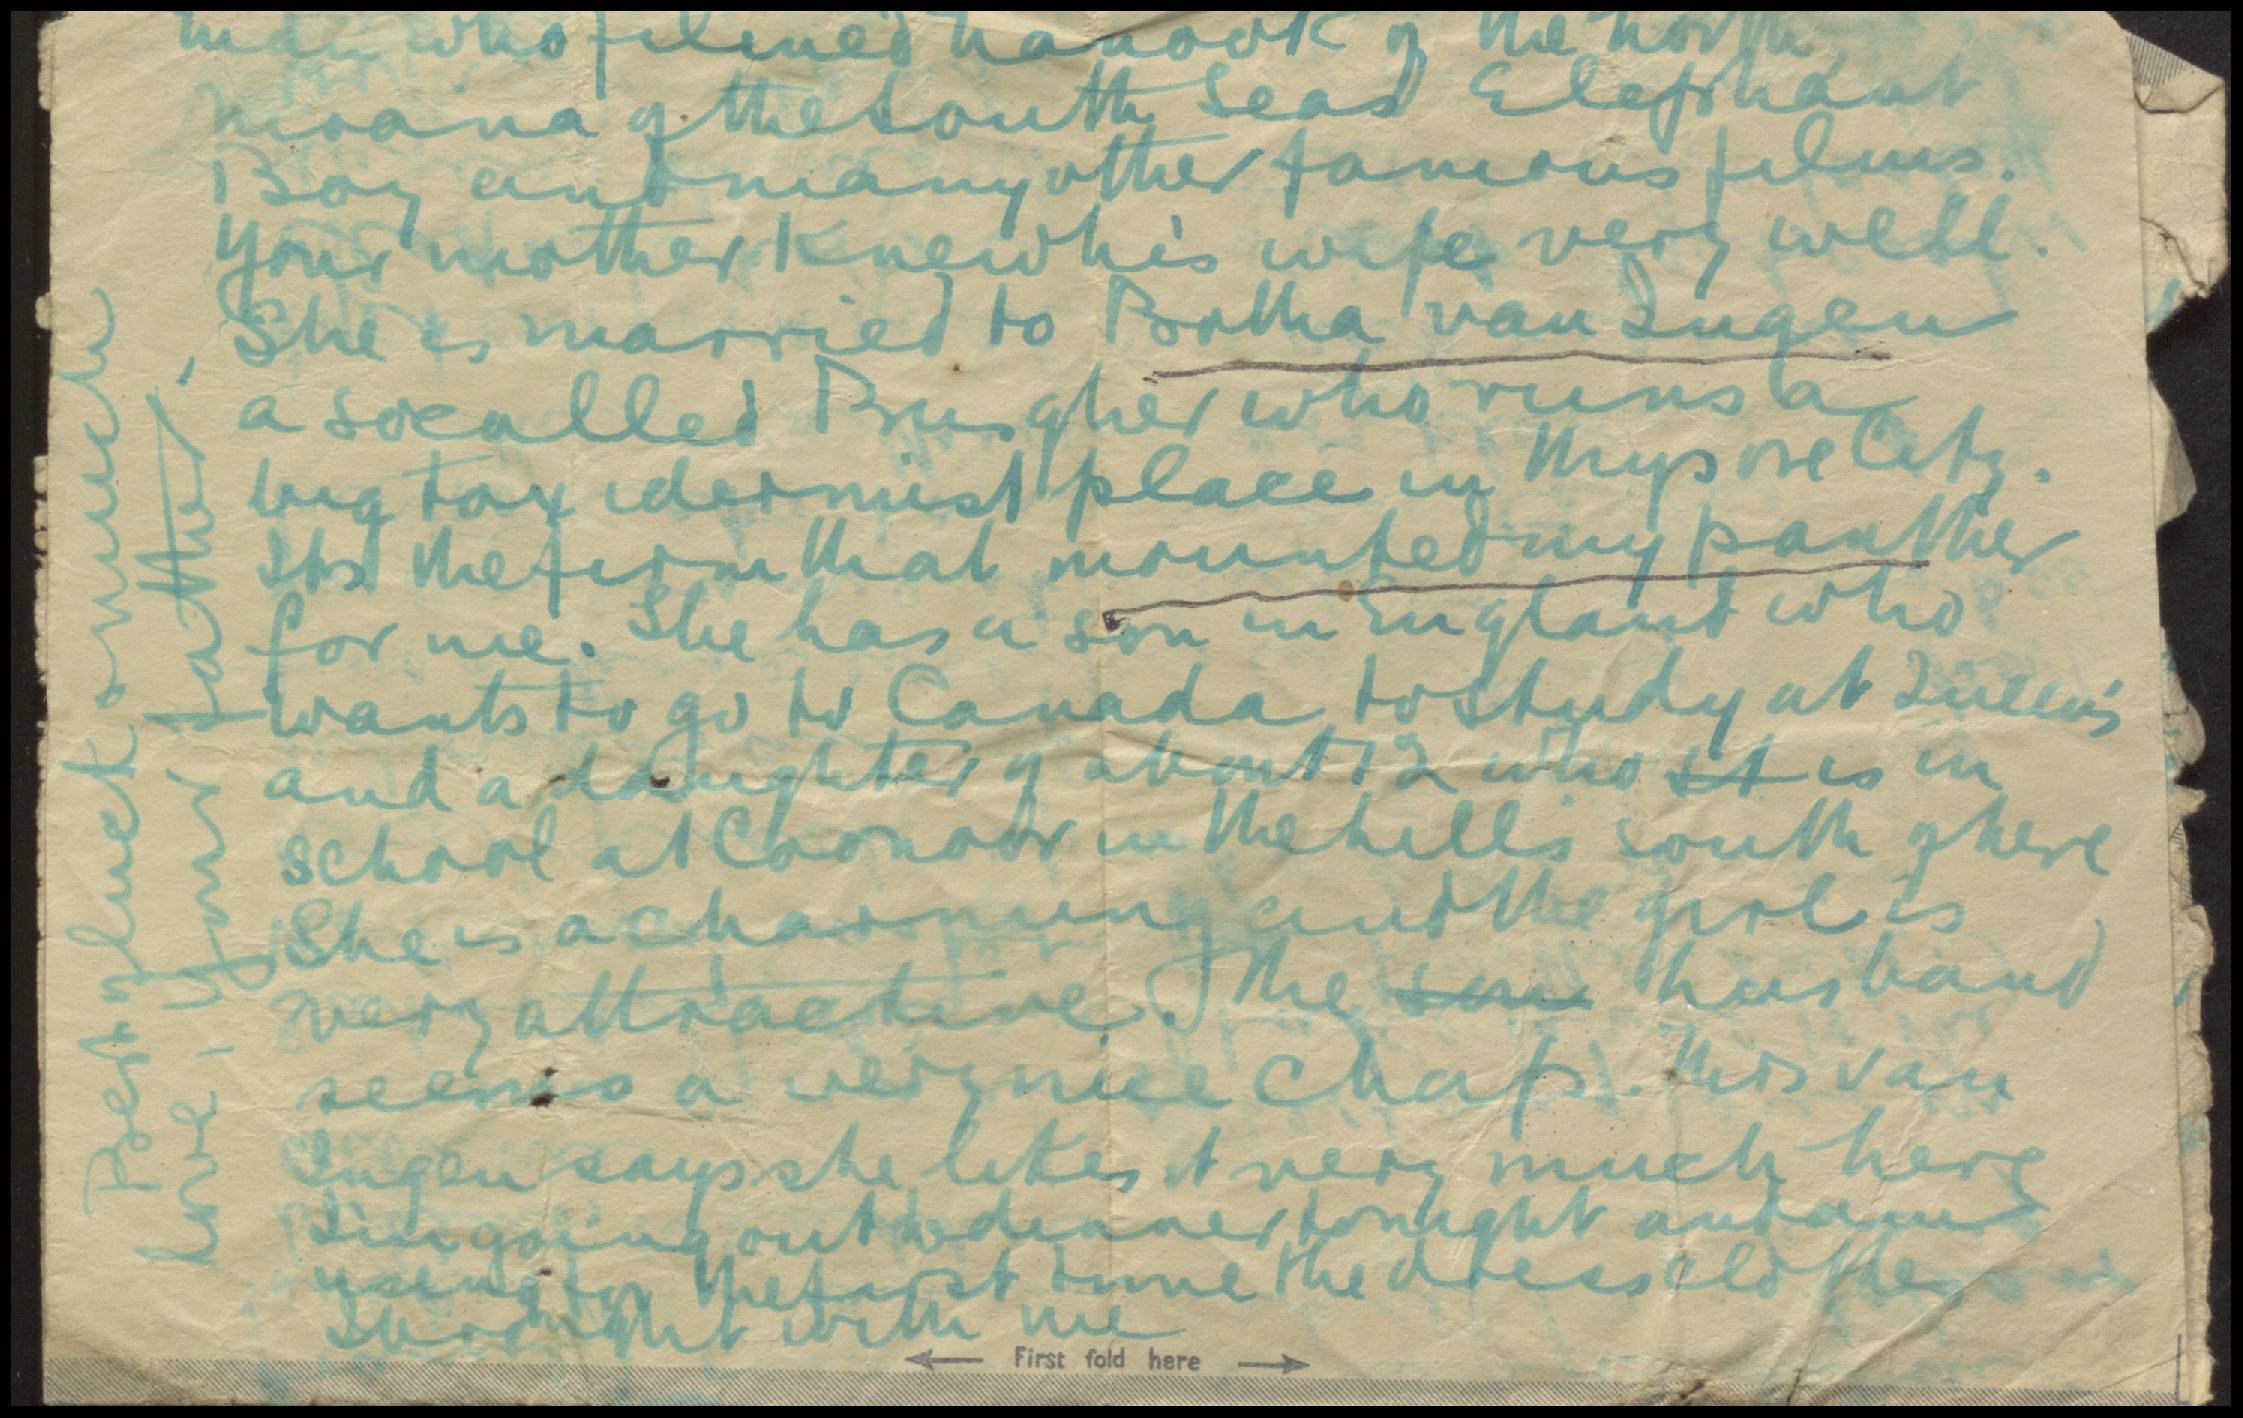 man who filmed Nanook of the North
Moana of the South Seas Elephant
Boy and many other famous films.
Your mother knew his wife very well.
She is married to Botha van Ingen
a socalled Burgher who runs a
big taxidermist place in Mysore City.
Its the firm that mounted my panther
for me. She has a son in England who
wants to go to Canada to study at Queen's
and a daughter of about 12 who st is in
school at Coonoor in the hills south of here
She is a charming and the girl is
very attractive. The son husband
seems a very nice chap. Mrs van
Ingen says she likes it very much here
I'm going out to dinner tonight and am
using for the first time the dress clothes
I brought with me
Best of luck & much
love, your father.
← First fold here →